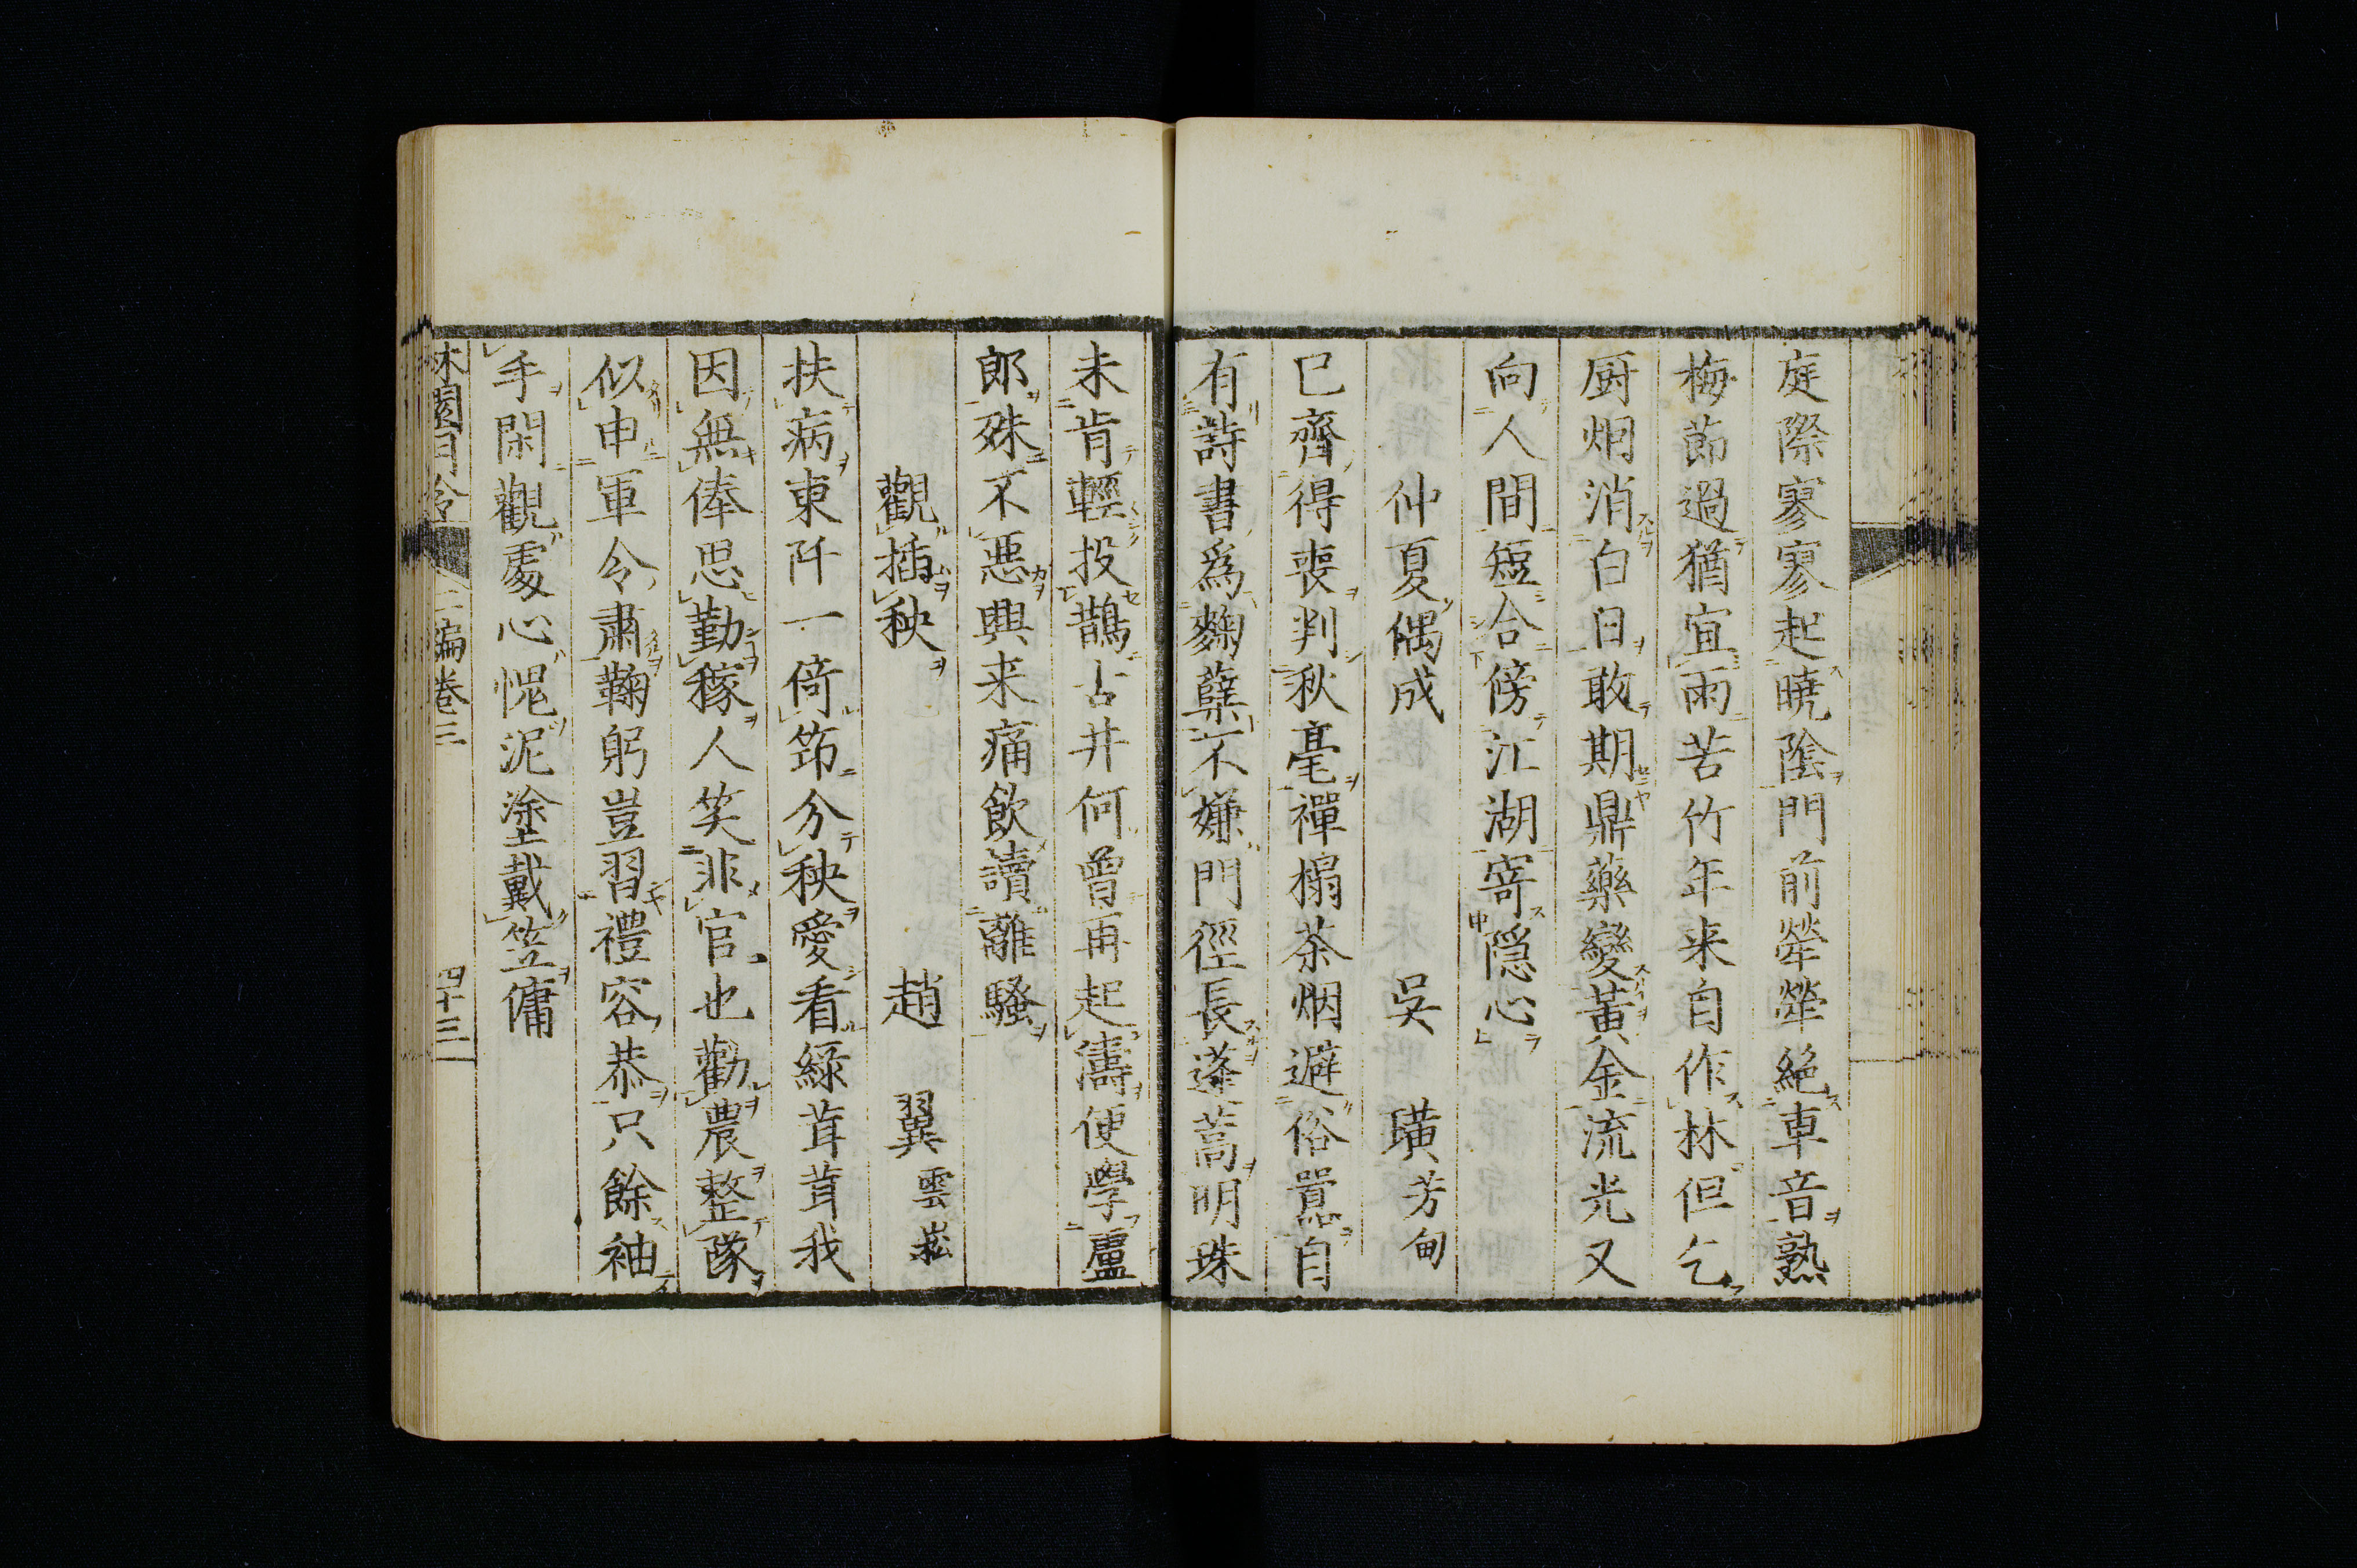 庭際寥寥起暁陰門前犖犖絕車音熟
梅節過猶宜雨苦竹年来自作林但乞
厨烟消白日敢期鼎藥變黃金流光又
向人間短合傍江湖寄隱心
仲夏偶成 吳 璜芳甸
已齊得喪判秋毫禪榻茶烟避俗囂自
有詩書爲麴蘖不嫌門徑長蓬蒿明珠
未肯輕投鵲古井何曾再起濤便學盧
郎殊不惡興来痛飲讀離騷
觀插秧 趙 翼雲崧
扶病東阡一倚筇分秧愛看綠茸茸我
因無俸思勤稼人笑非官也勸農整隊
似申軍令肅鞠躬豈習禮容恭只餘袖
手閑觀處心愧泥塗戴笠傭
林園月令 二編卷三 四十三